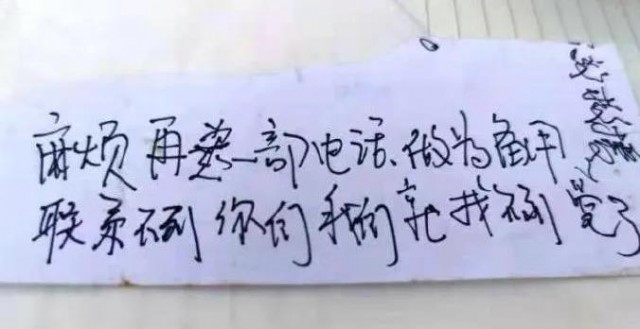 麻烦再装一部电话、做为备用
联系不到你们我们就找不到觉了